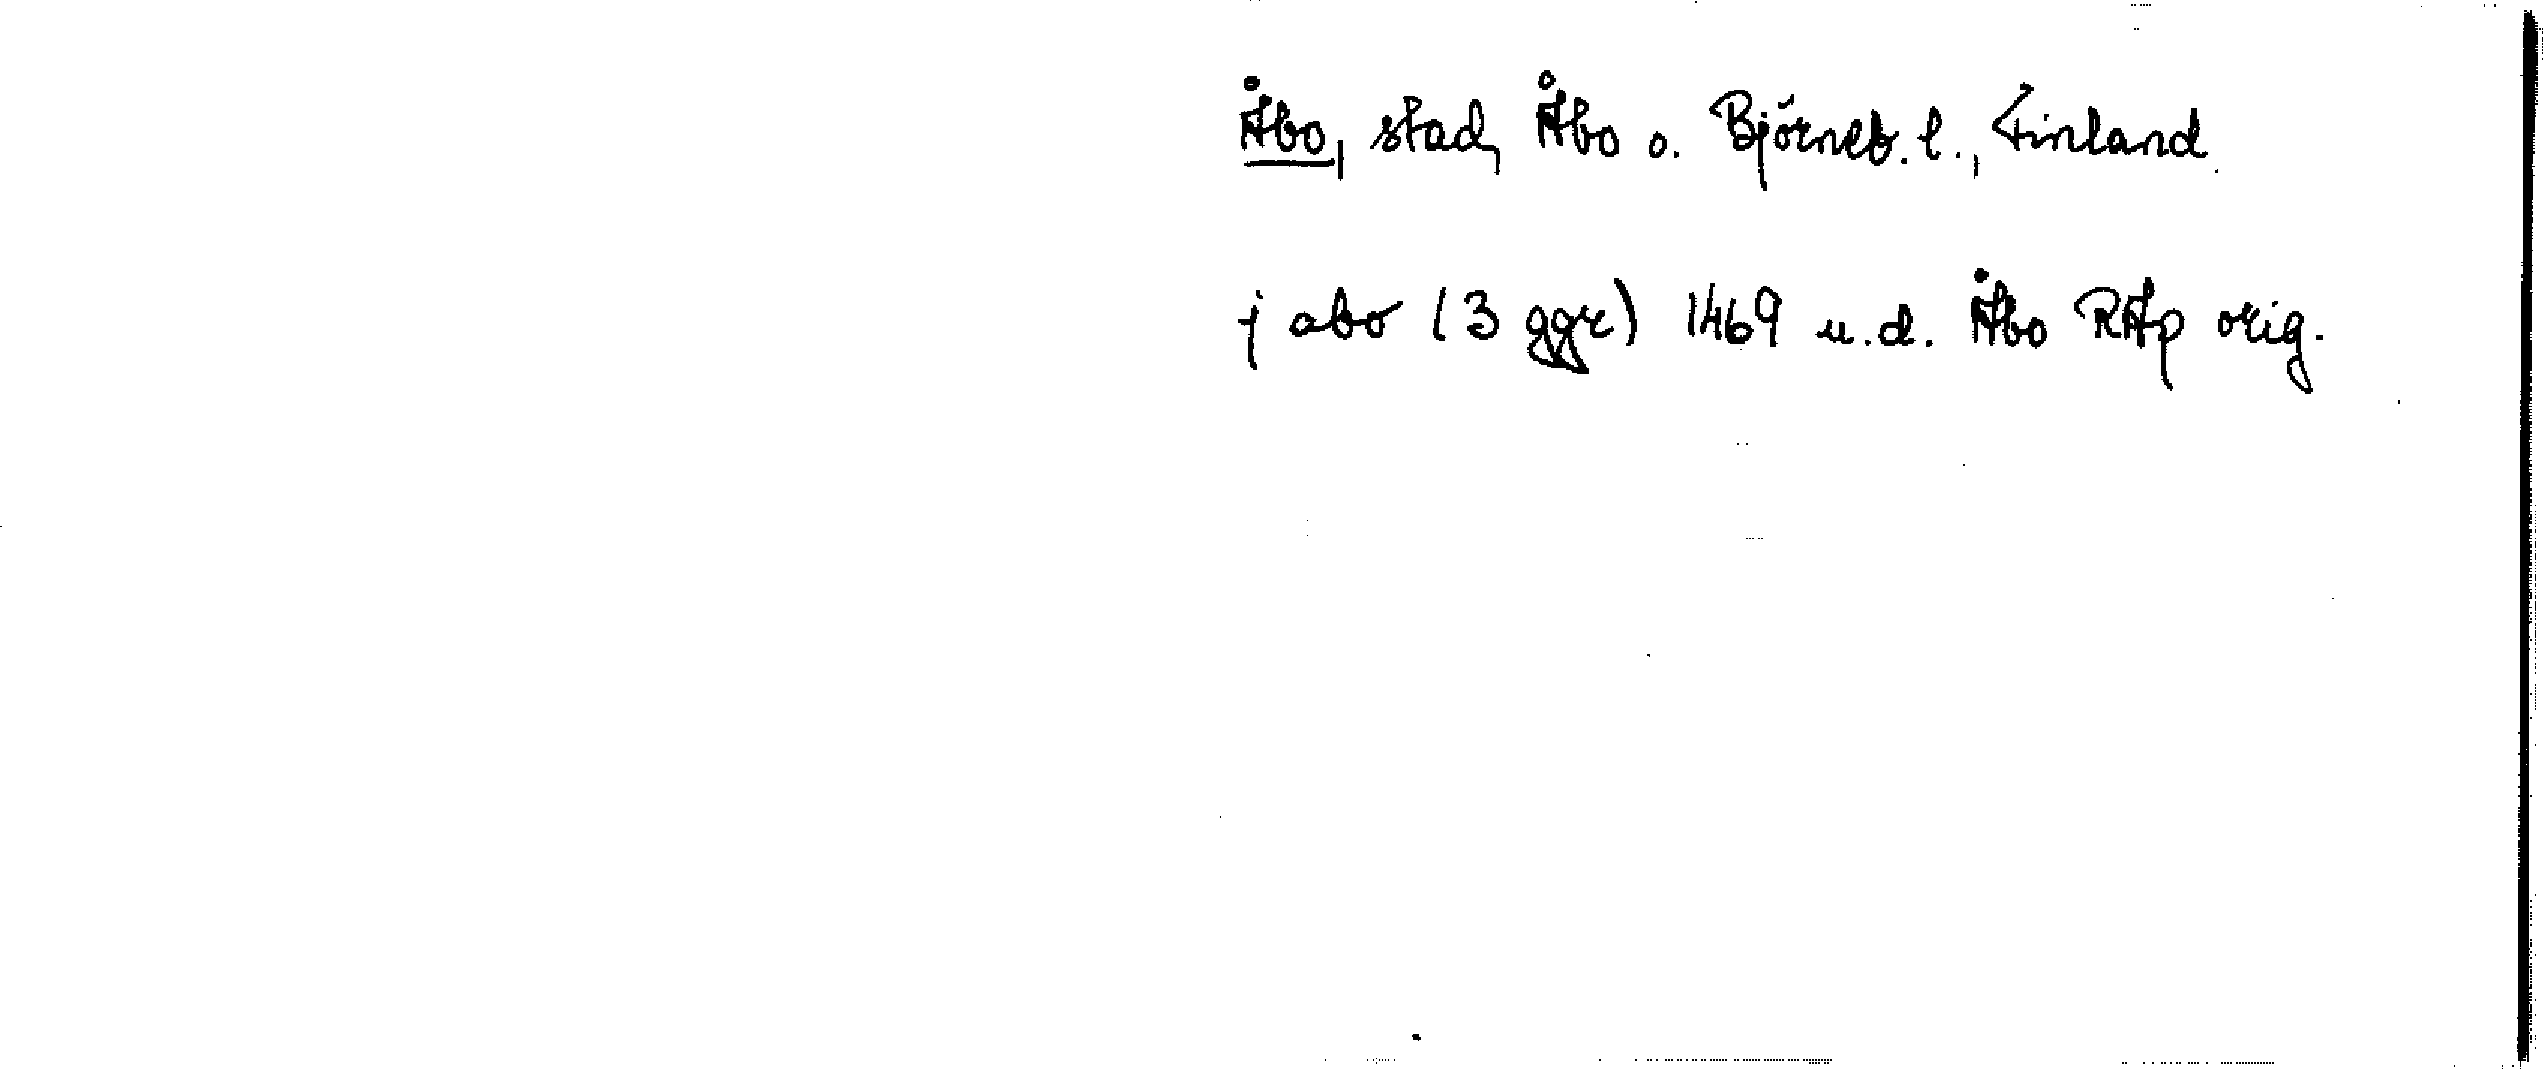 Åbo, stad, Åbo o. Björneb. l., Finland.
j abo (3 ggr) 1469 u.d. Åbo RAp orig.